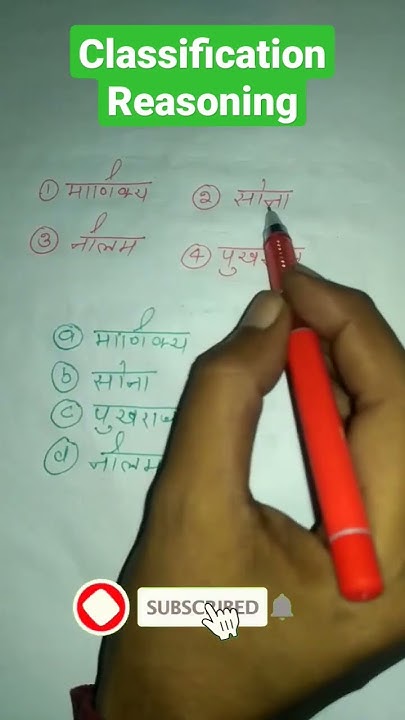 Classification
Reasoning
① माणिक्य ② सोना
③ नीलम ④ पुखराज
ⓐ माणिक्य
ⓑ सोना
ⓒ पुखराज
ⓓ नीलम
SUBSCRIBED